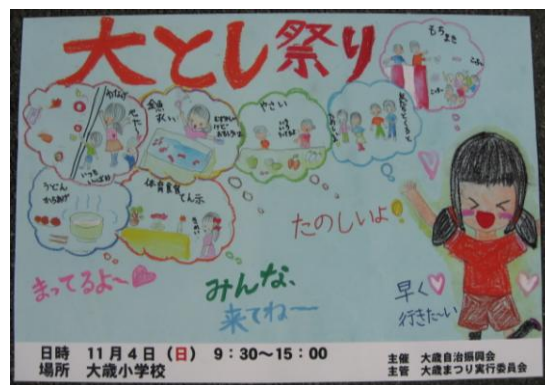 大とし祭り
もちまき
金魚
すくい
やさい
うどん
からあげ
体育館
てん示
たのしいよ!
まってるよ~
みんな、
来てね~
早く
行きた~い
日時 11月4日(日) 9:30~15:00
場所 大歳小学校
主催 大歳自治振興会
主管 大歳まつり実行委員会